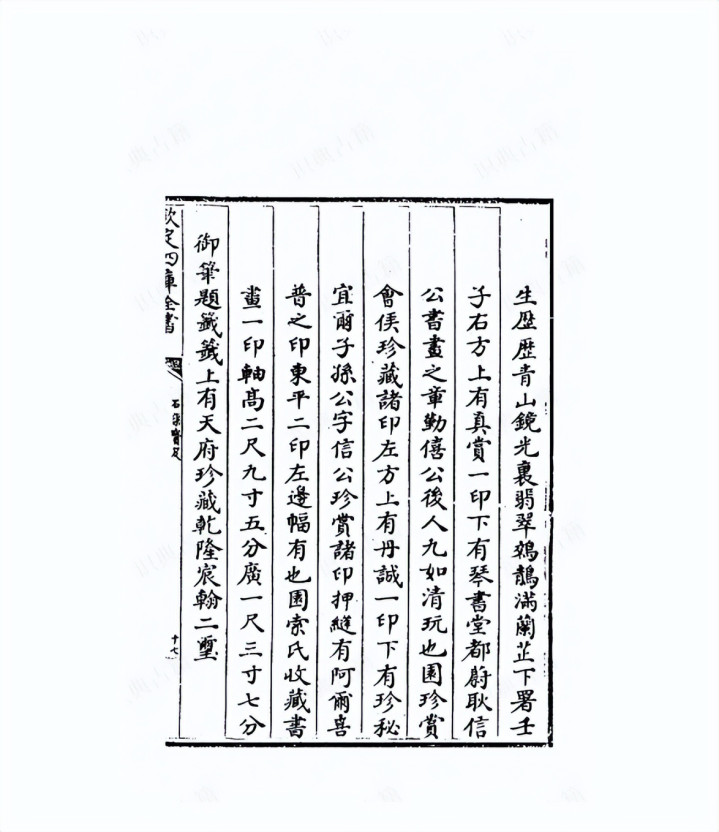 生歴歴青山鏡光裏翡翠鵁鶄滿蘭芷下署壬
子右方上有真賞一印下有琴書堂都蔚耿信
公書畫之章勤僖公後人九如清玩也園珍賞
會侯珍藏諸印左方上有丹誠一印下有珍秘
宜爾子孫公字信公珍賞諸印押縫有阿爾喜
普之印東平二印左邊幅有也園索氏收藏書
畫一印軸髙二尺九寸五分廣一尺三寸七分
御筆題籤籤上有天府珍藏乾隆宸翰二璽
欽定四庫全書
石渠寳笈
十七